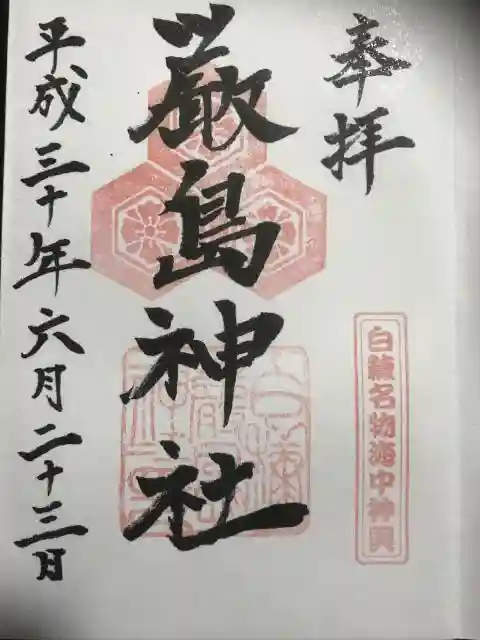 奉拝
白籏名物海中神輿
厳島神社
平成三十年六月二十三日